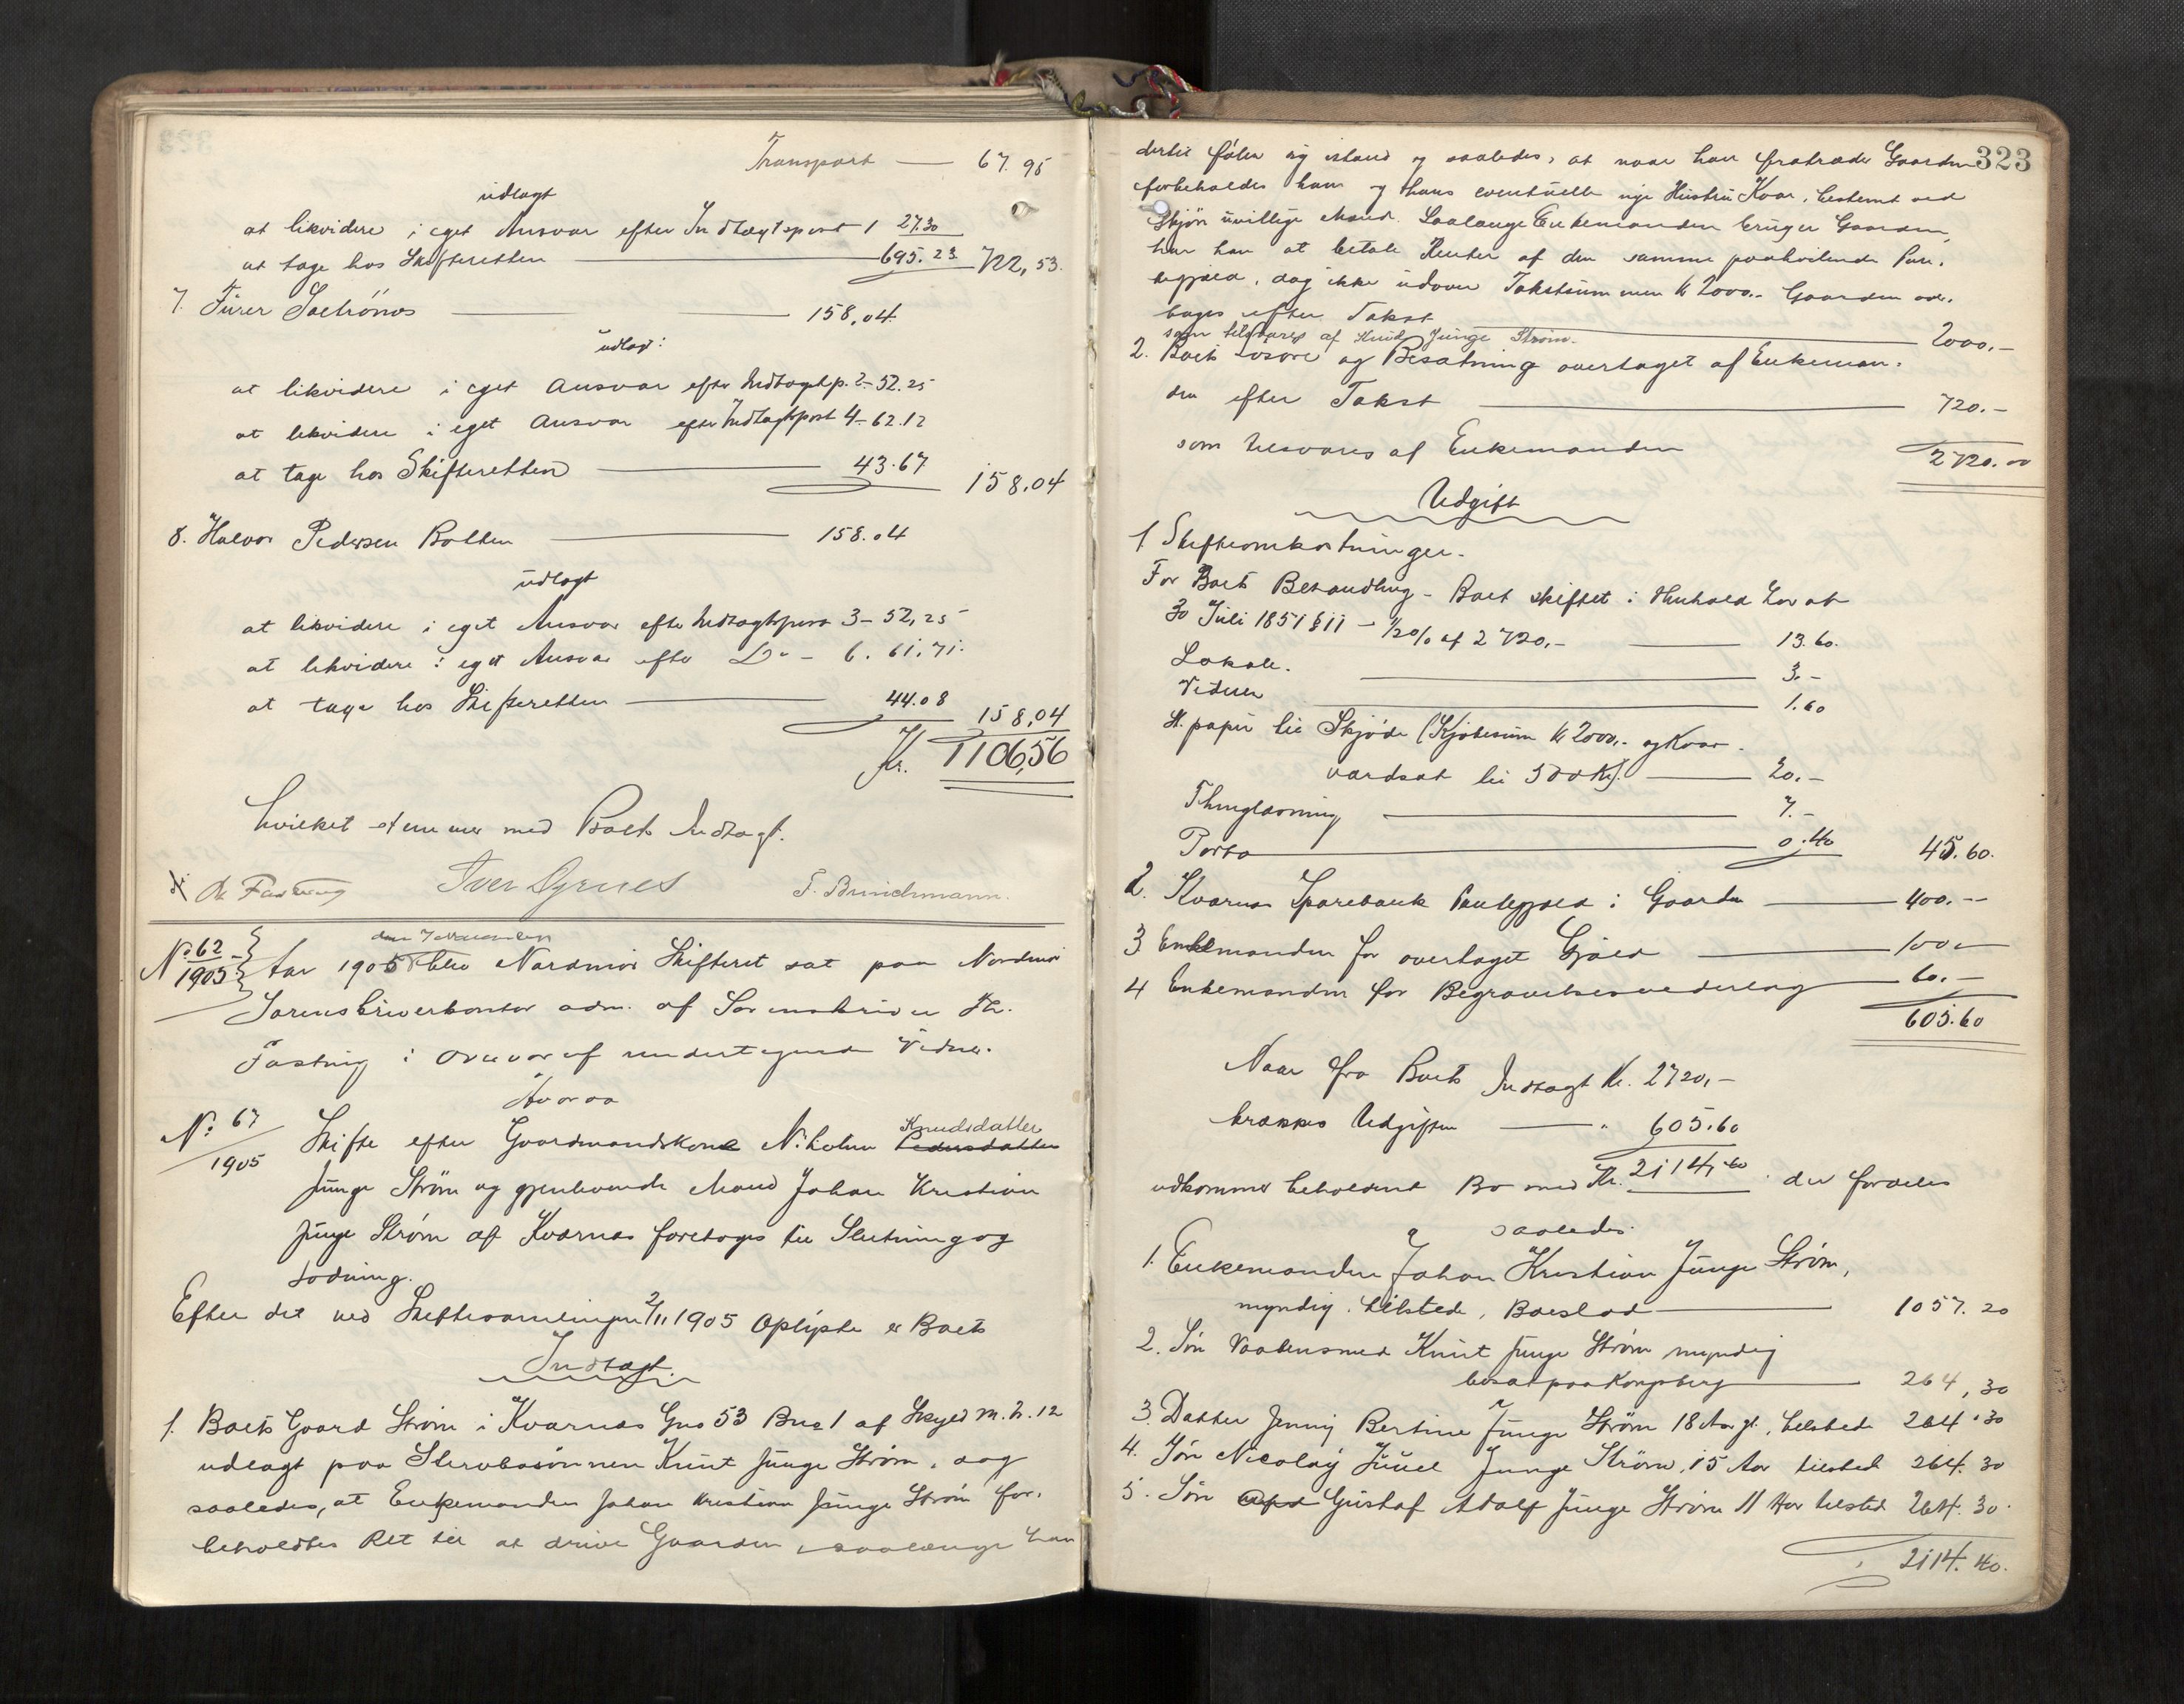 Transport — 67.95
udlagt
at likvidere i eget Ansvar efter Indtægtspost 1 27.30
at tage hos Skifteretten — 695.23 722,53.
7. Fürer Sætrönos — 158,04.
udlagt:
at likvidere i eget Ansvar efter Indtægtsp. 2 - 52.25
at likvidere i eget Ansvar efter Indtægtspost 4 - 62.12
at tage hos Skifteretten — 43.67 158,04
8. Halvor Pedersen Bolten — 158.04
udlagt
at likvidere i eget Ansvar efter Indtægtspost 3 - 52,25
at likvidere i eget Ansvar efter Do - 6. 61.71.
at tage hos Skifteretten — 44.08 158,04
Kr. 1106,56
hvilket stemmer med Boets Indtægt.
Fasting Iver Øyenes F. Brinchmann.
No 62 / 1905 Aar 1905 den 7 November blev Nordmør Skifteret sat paa Nordmør
Sorenskriverkontor adm. af Sorenskriver Kr.
Fasting i Overvær af undertegnede Vidner.
Hvorpaa
No 67 / 1905 Skifte efter Gaardmandskone Nikoline Pedersdatter Knudsdatter
Junge Strøm og gjenlevende Mand Johan Kristian
Junge Strøm af Kværnes foretoges til Slutning og
Lodning.
Efter det ved Skiftesamlingen 2/11 1905 Oplyste er Boets
Indtægt.
1. Boets Gaard Strøm i Kværnes Gno 53 Bno 1 af Skyld M. 2.12
udlagt paa Stervbosønnen Knut Junge Strøm, dog
saaledes, at Enkemanden Johan Kristian Junge Strøm for-
beholdtes Ret til at drive Gaarden, saalænge han
323
dertil føler sig istand og saaledes, at naar han fratræder Gaarden
forbeholdes ham og hans eventuelle nye Hustru Kaar, bestemt ved
Skjøn uvillige Mænd. Saalænge Enkemanden bruger Gaarden,
har han at betale Renter af den samme paahvilende Pan-
tegjæld, dog ikke udover Takstsummen kr 2000.- Gaarden over-
tages efter Takst — 2000.-
som tilsvares af Knud Junge Strøm.
2. Boets Løsøre og Besætning overtaget af Enkeman-
den efter Takst — 720.-
som tilsvares af Enkemanden
2720.00
Udgift
1 Skifteomkostninger.
For Boets Behandling - Boet skiftet i Henhold Lov af
30 Juli 1851 § 11 - 1/2 0/0 af 2720.- — 13.60.
Lokale. — 3.-
Vidner — 1.60
St. papir til Skjøde (Kjøbesum kr 2000,- og Kaar
værdsat til 500 Kr). — 20.-
Thinglæsning — 7.-
Porto — 0.40 45.60.
2. Kværnes Sparebank Pantegjæld i Gaarden — 400.--
3 Enkemanden for overtaget Gjæld — 100.-
4 Enkemanden for Begravelsesvederlag — 60.-
605.60
Naar fra Boets Indtægt Kr. 2720,-
trækkes Udgiften — " 605.60
udkommer beholdent Bo med Kr. 2114,40 der fordeles
saaledes:
1. Enkemanden Johan Kristian Junge Strøm,
myndig, tilstede, Boeslod — 1057.20
2. Søn Vaabensmed Knut Junge Strøm myndig
bosat paa Kongsberg — 264,30
3. Datter Jenny Bertine Junge Strøm 18 Aar gl., tilstede 264.30
4. Søn Nicolay Juuel Junge Strøm, 15 Aar tilstede 264.30
5. Søn Gustaf Adolf Junge Strøm 11 Aar tilstede 264.30.
2114.40.